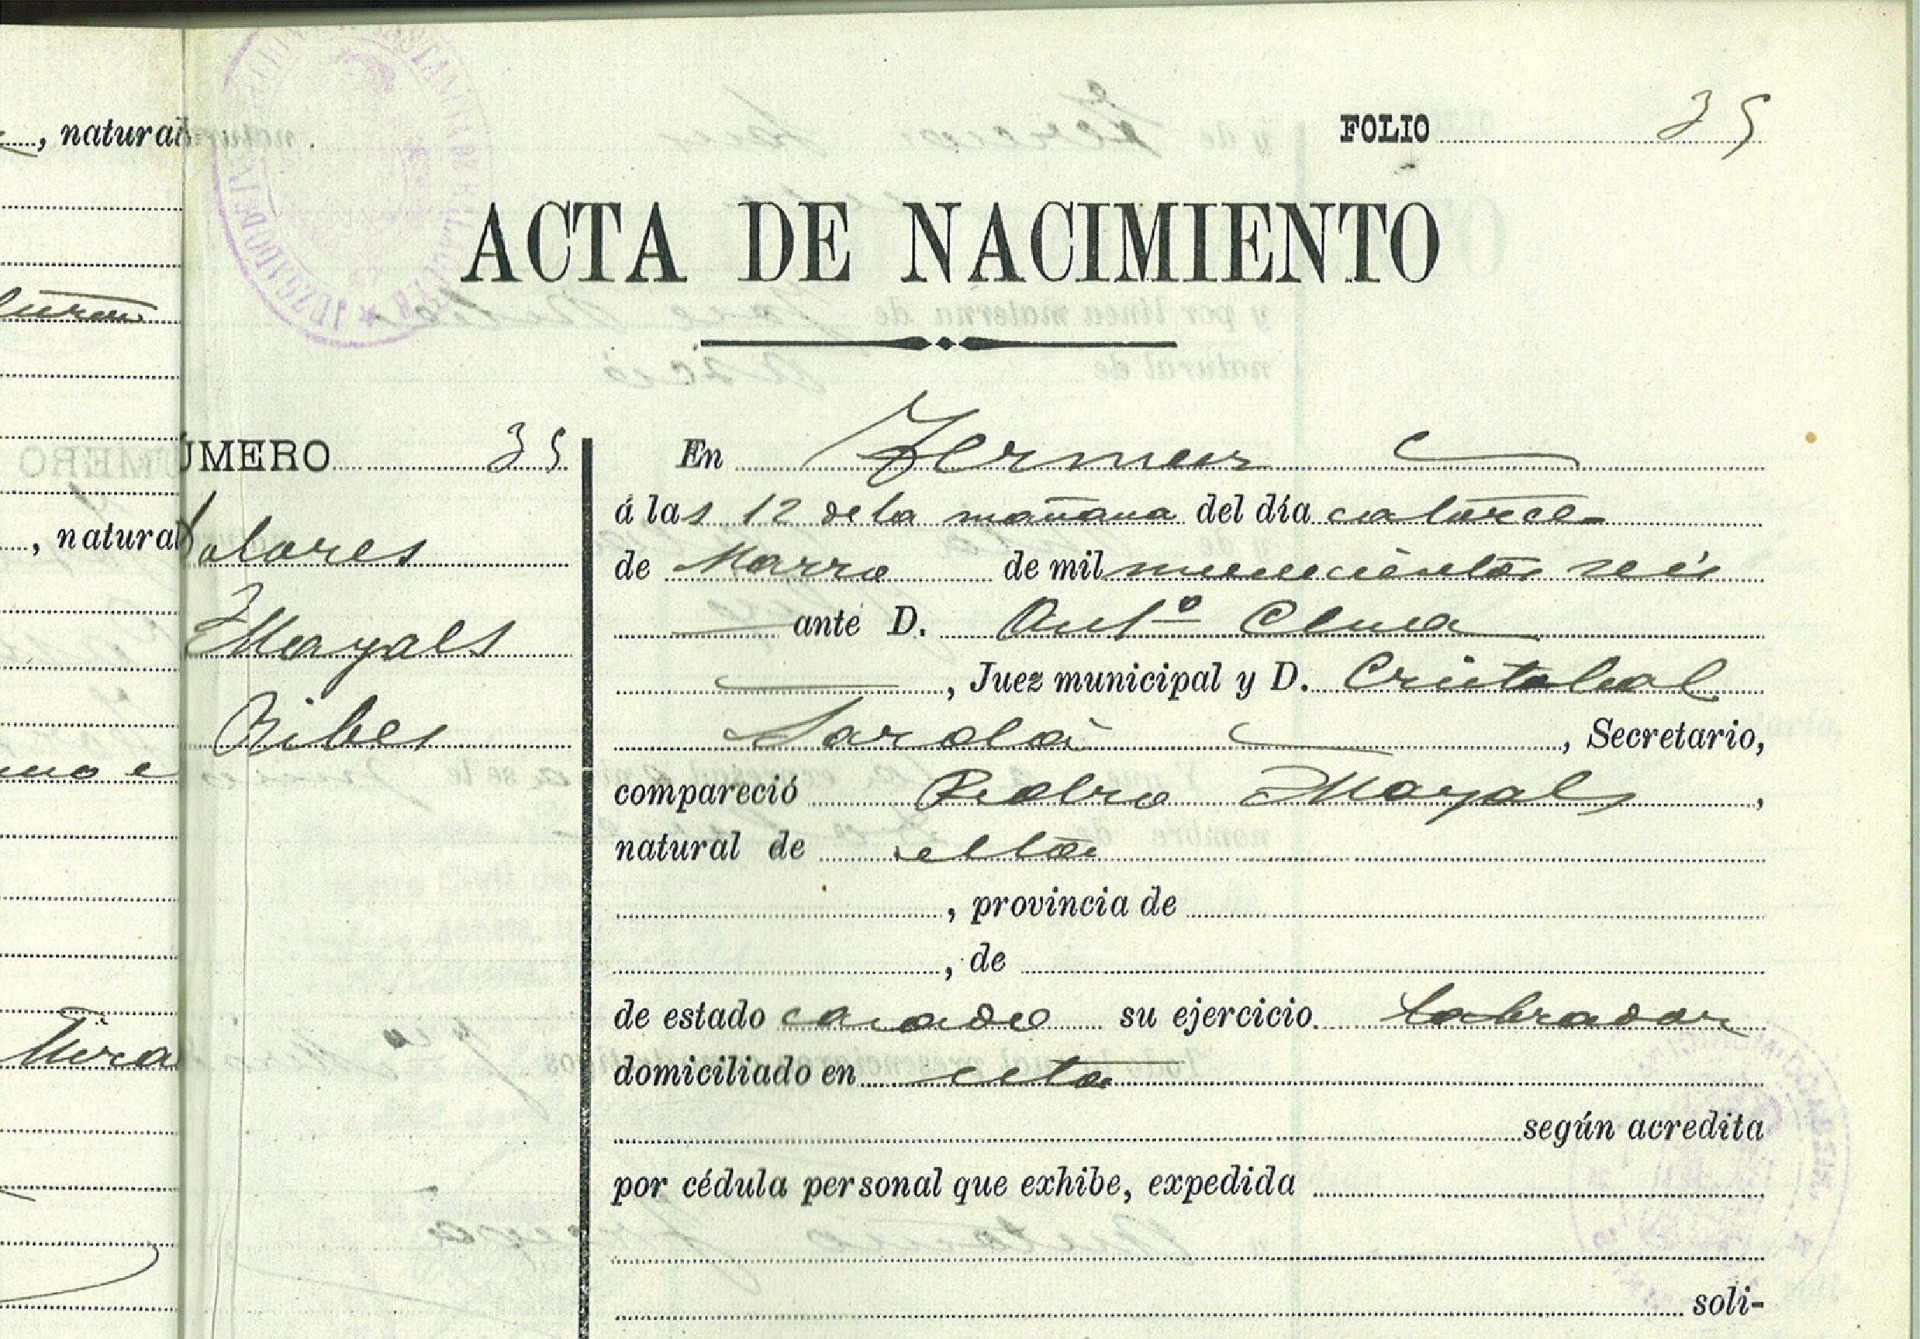 , natural
FOLIO 35
ACTA DE NACIMIENTO
UMERO 35
, natural
Dolores
Mayals
Ribes
En Termens
á las 12 de la mañana del día catorce
de Marzo de mil novecientos seis
ante D. Antº Clua
, Juez municipal y D. Cristobal
Sarolá, Secretario,
compareció Pedro Mayals,
natural de esta
, provincia de
, de
de estado casado su ejercicio labrador
domiciliado en esta
según acredita
por cédula personal que exhibe, expedida
soli-